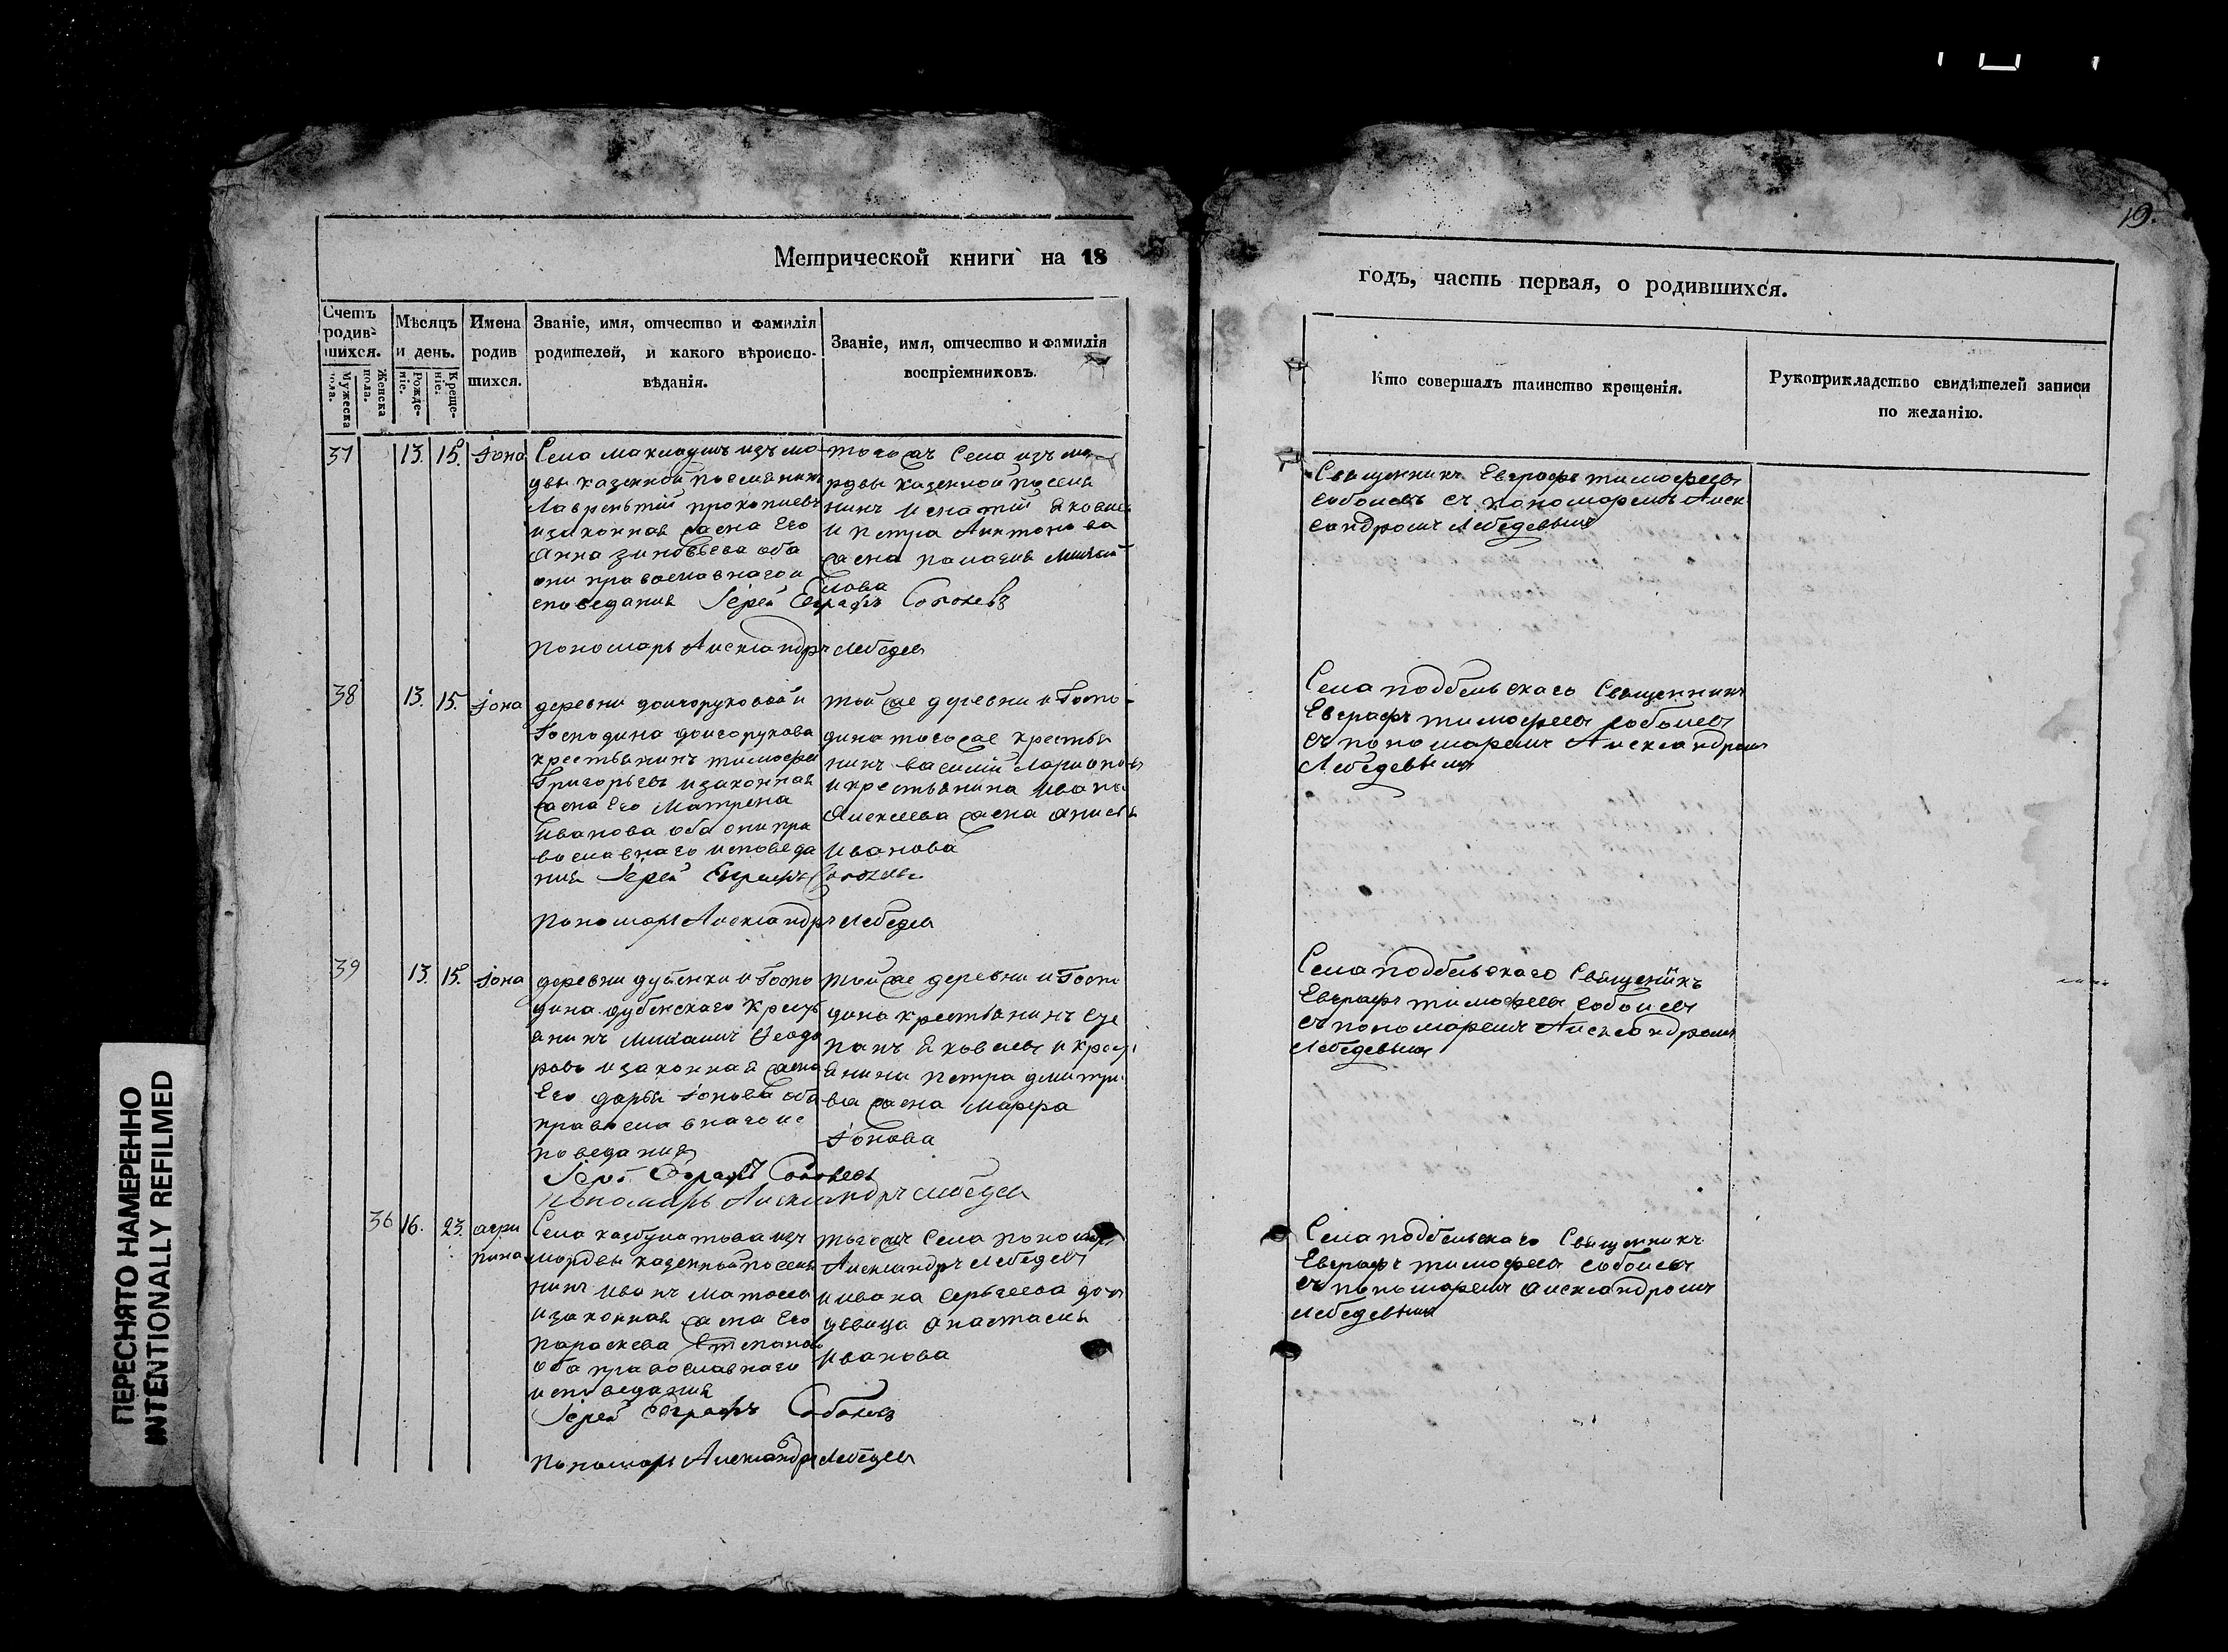 19.
Метрической книги на 18
годъ, часть первая, о родившихся.
Счетъ родив- шихся.
Мужеска пола.
Женска пола.
Мѣсяцъ и день.
Рожде- ніе.
Креще- ніе.
Имена родив шихся.
Званіе, имя, отчество и фамилія
родителей, и какого вѣроиспо-
вѣданія.
Званіе, имя, отчество и фамилія
воспріемниковъ.
Кто совершалъ таинство крещенія.
Рукоприкладство свидѣтелей записи
по желанію.
37 13. 15. Іона
Села изъ мо
двы казенной поселянинъ
Лаврентій прокопиевъ
изаконная жена Его
Анна зиновьева оба
они православнаго и
споведания Іерей Евграфъ Соболевъ
Пономарь Александръ Лебедев
тогожъ Села изъ мо
рдвы казенной поселя
нинъ Игнатий Яковлев
и петра Антонова
жена палагия Михай
лова
Священникъ Евграфъ тимофеев
соболевъ съ пономаремъ Алек
сандромъ Лебедевым
38 13. 15. Іона
деревни долгоруковой и
Господина долгорукова
крестьянинъ тимофей
Григорьевъ изаконная
жена Его Матрена
Иванова оба они пра
вославнаго исповеда
ния Іерей Евграфъ Соболевъ
Пономарь Александръ Лебедев
той же деревни и Госпо-
дина тогоже крестья
нинъ василий Ларионов
икрестьянина Ивана
Алексеева жена
Иванова
Села подбельскаго Священникъ
Евграфъ тимофеев соболев
съ пономаремъ Александром
Лебедевым
39 13. 15. Іона
деревни дубенки и Госпо
дина дубенскаго Крестья
янинъ Михаилъ Феодо
ровъ изаконная жена
Его дарья Іонова оба
православнаго ис
поведания
Іерей Евграфъ Соболевъ
Пономарь Александръ Лебедев
той же деревни и Госпо
дина крестьянинъ
Яковлев и крест
янина петра дмитри
ва жена марфа
Іонова
Села подбельскаго Священикъ
Евграфъ тимофеев соболев
съ пономаремъ Александромъ
Лебедевым
36 16. 23. агри
пина
Села казбулатова изъ
мордвы казенной поселя
нинъ Иванъ Матвеев
изаконная жена Его
параскева Степанов
оба православнаго
исповедания
Іерей Евграфъ Соболевъ
Пономарь Александръ Лебедев
тогожъ Села пономарь
Александръ Лебедевъ
и ивана Сергеева дочь
девица анастасия
Иванова
Села подбельскаго Священникъ
Евграфъ тимофеев соболев
съ пономаремъ александромъ
лебедевым
ПЕРЕСНЯТО НАМЕРЕННО
INTENTIONALLY REFILMED